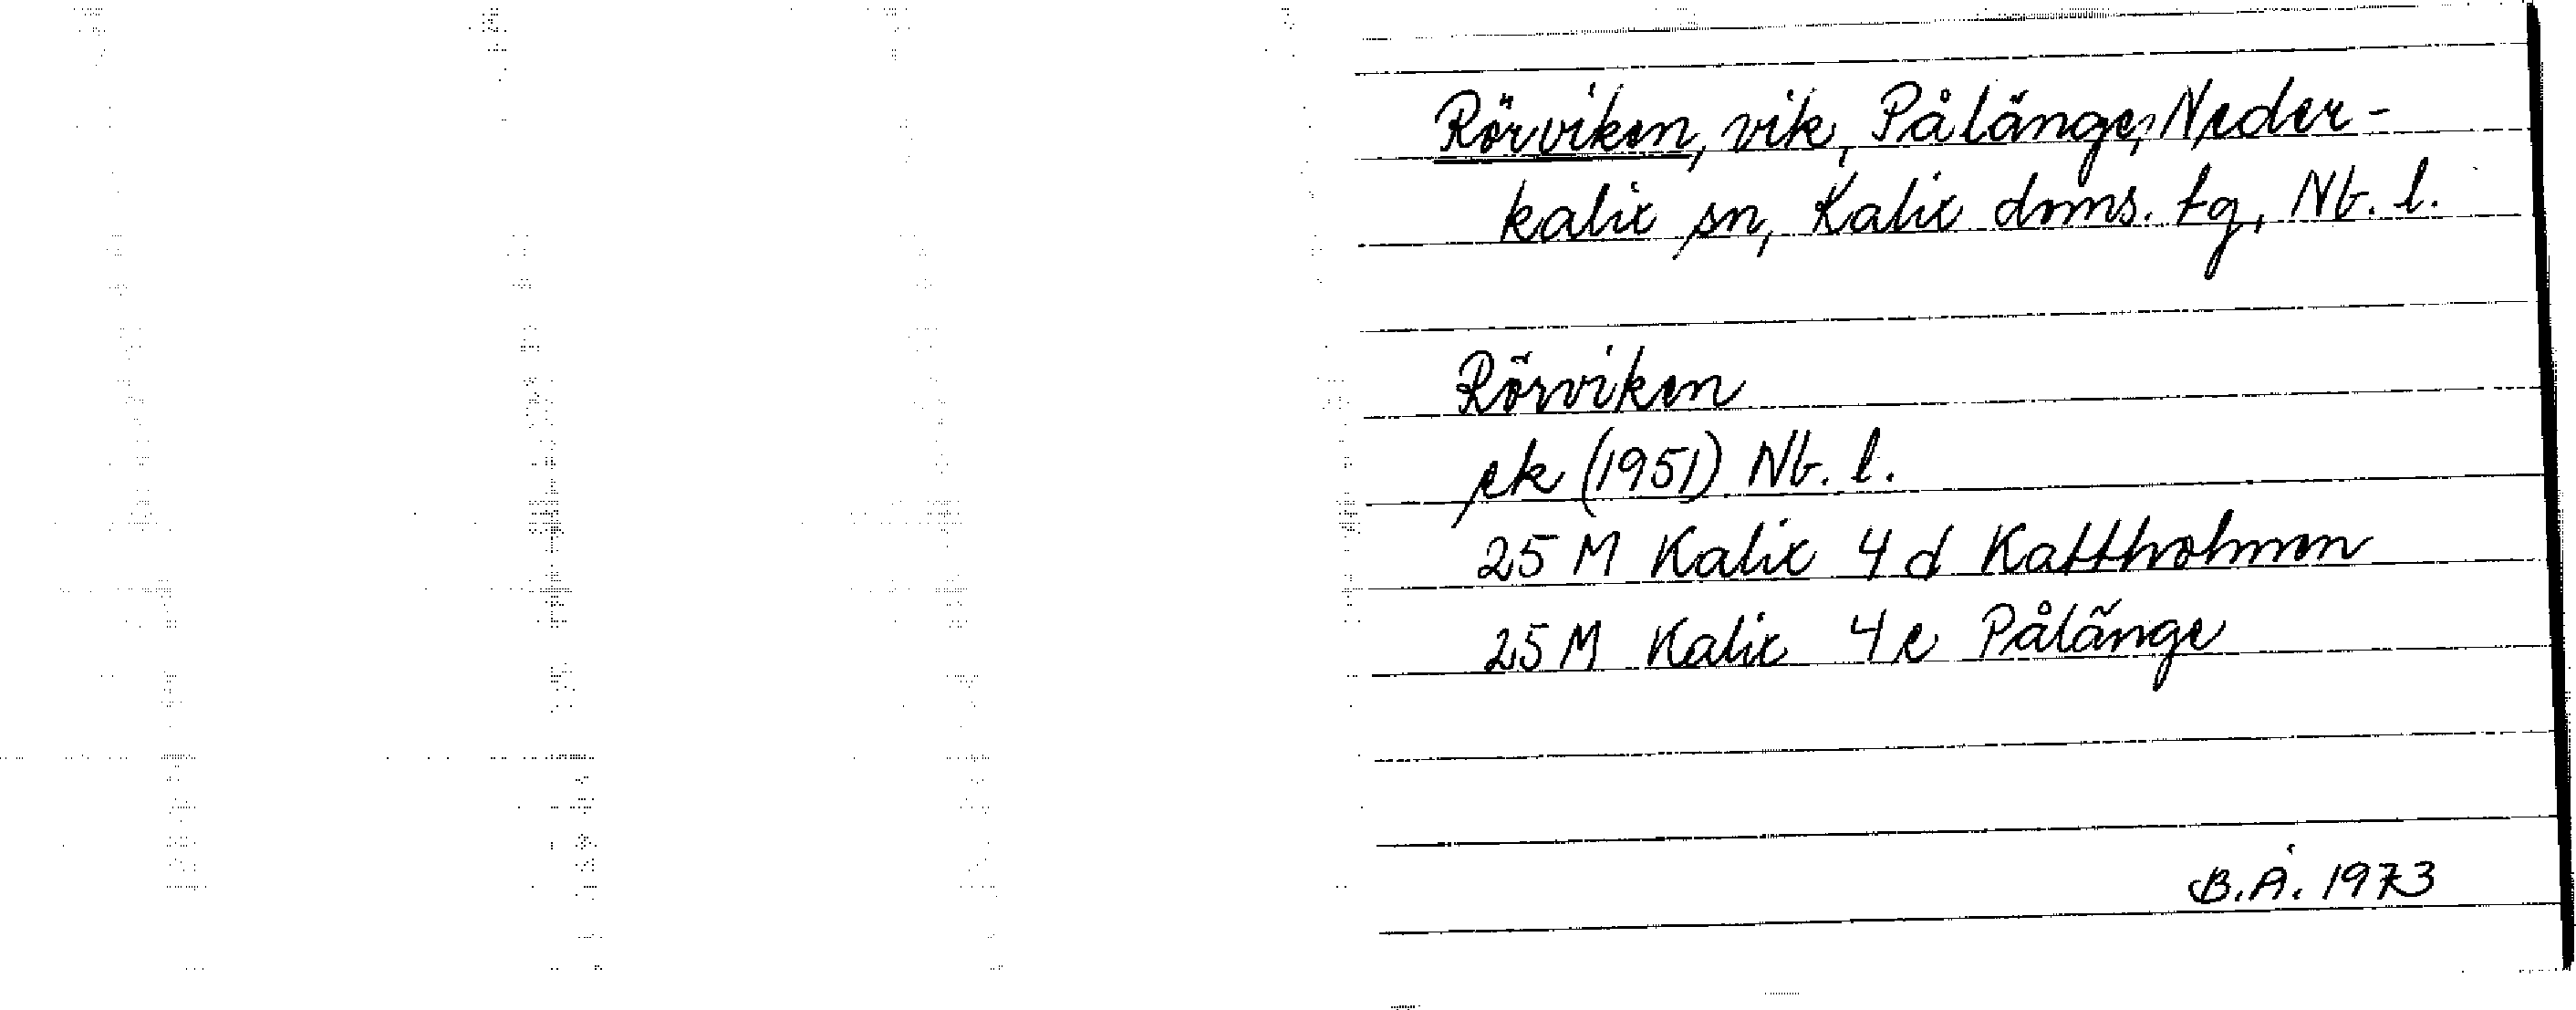 Rörviken, vik, Pålänge, Neder-
kalix sn, Kalix doms. tg, Nb. l.
Rörviken
ek (1951) Nb. l.
25 M Kalix 4 d Kattholmen
25 M Kalix 4 e Pålänge
B.Å. 1973